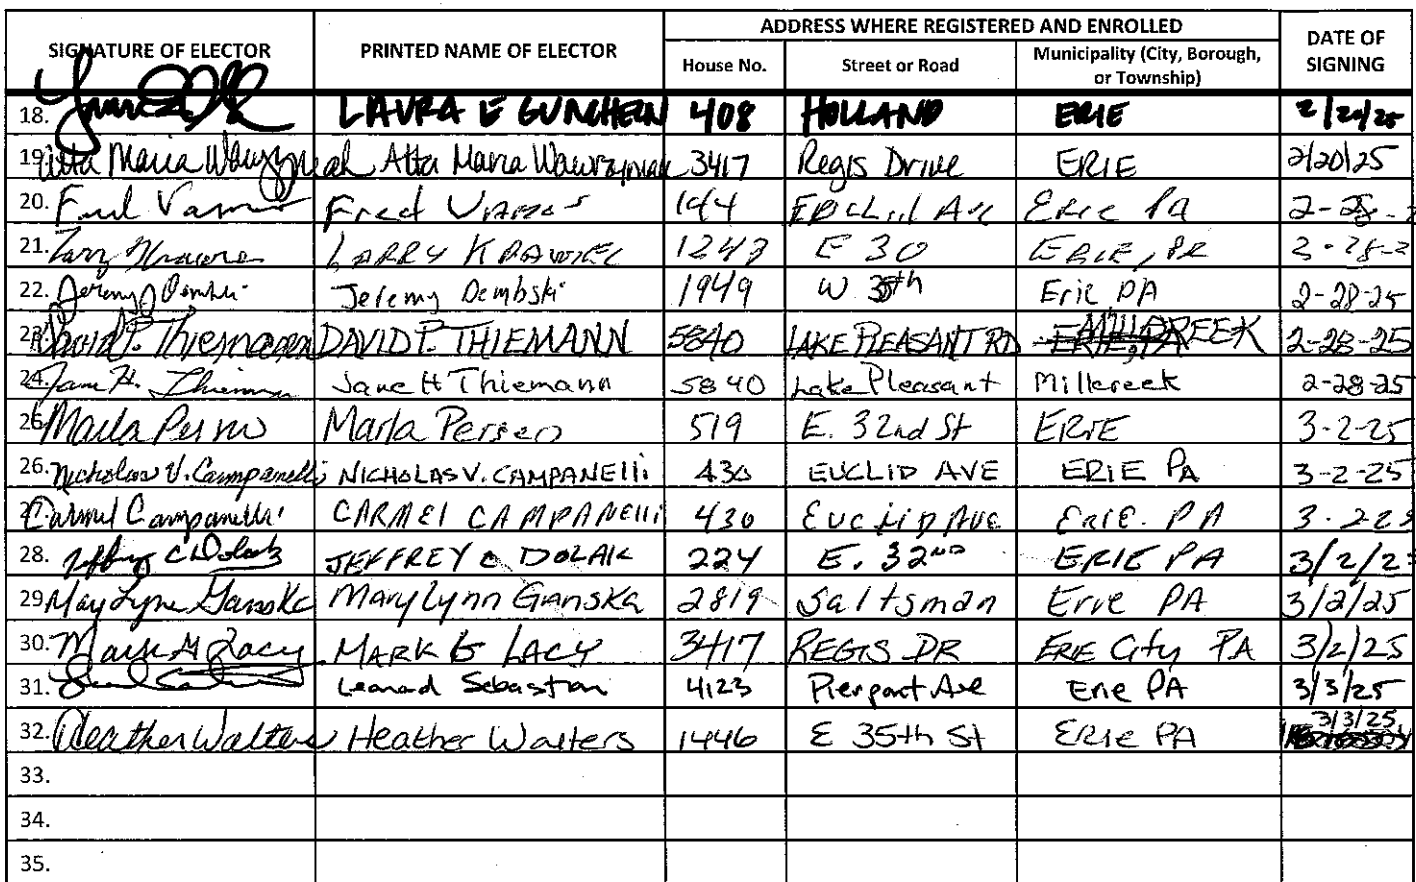 ADDRESS WHERE REGISTERED AND ENROLLED
SIGNATURE OF ELECTOR PRINTED NAME OF ELECTOR House No. Street or Road Municipality (City, Borough, or Township) DATE OF SIGNING
18. LAURA E GUNCHEON 408 HOLLAND ERIE 2/20/25
19. Atta Maria Wawrzyniak Atta Maria Wawrzyniak 3417 Regis Drive ERIE 2/20/25
20. Fred 144 Ave Erie Pa 2-28-2
21. Larry Krawiec LARRY KRAWIEC 1243 E 30 ERIE, PA 2-28-2
22. Jeremy Dembski Jeremy Dembski 1949 W 35th Erie PA 2-28-25
23. David P. Thiemann DAVID P. THIEMANN 5840 LAKE PLEASANT RD MILLCREEK 2-28-25
24. Jane H. Thiemann Jane H Thiemann 5840 Lake Pleasant Millcreek 2-28-25
25. Marla Perseo Marla Perseo 519 E. 32nd St ERIE 3-2-25
26. Nicholas V. Campanelli NICHOLAS V. CAMPANElli 430 EUCLID AVE ERIE PA 3-2-25
27. Carmel Campanelli CARMEl CAMPANElli 430 EUCLID AVE ERIE. PA 3-2 25
28. Jeffrey C Dolak JEFFREY C DOLAK 224 E. 32ND ERIE PA 3/2/2
29. Mary Lynn Ganska Mary Lynn Ganska 2819 Saltsman Erie PA 3/2/25
30. Mark G Lacy MARK G LACY 3417 REGIS DR ERIE City PA 3/2/25
31. Leonard Sebastian 4123 Pierpont Ave Erie PA 3/3/25
32. Heather Walters Heather Walters 1446 E 35th St Erie PA 3/3/25
33.
34.
35.